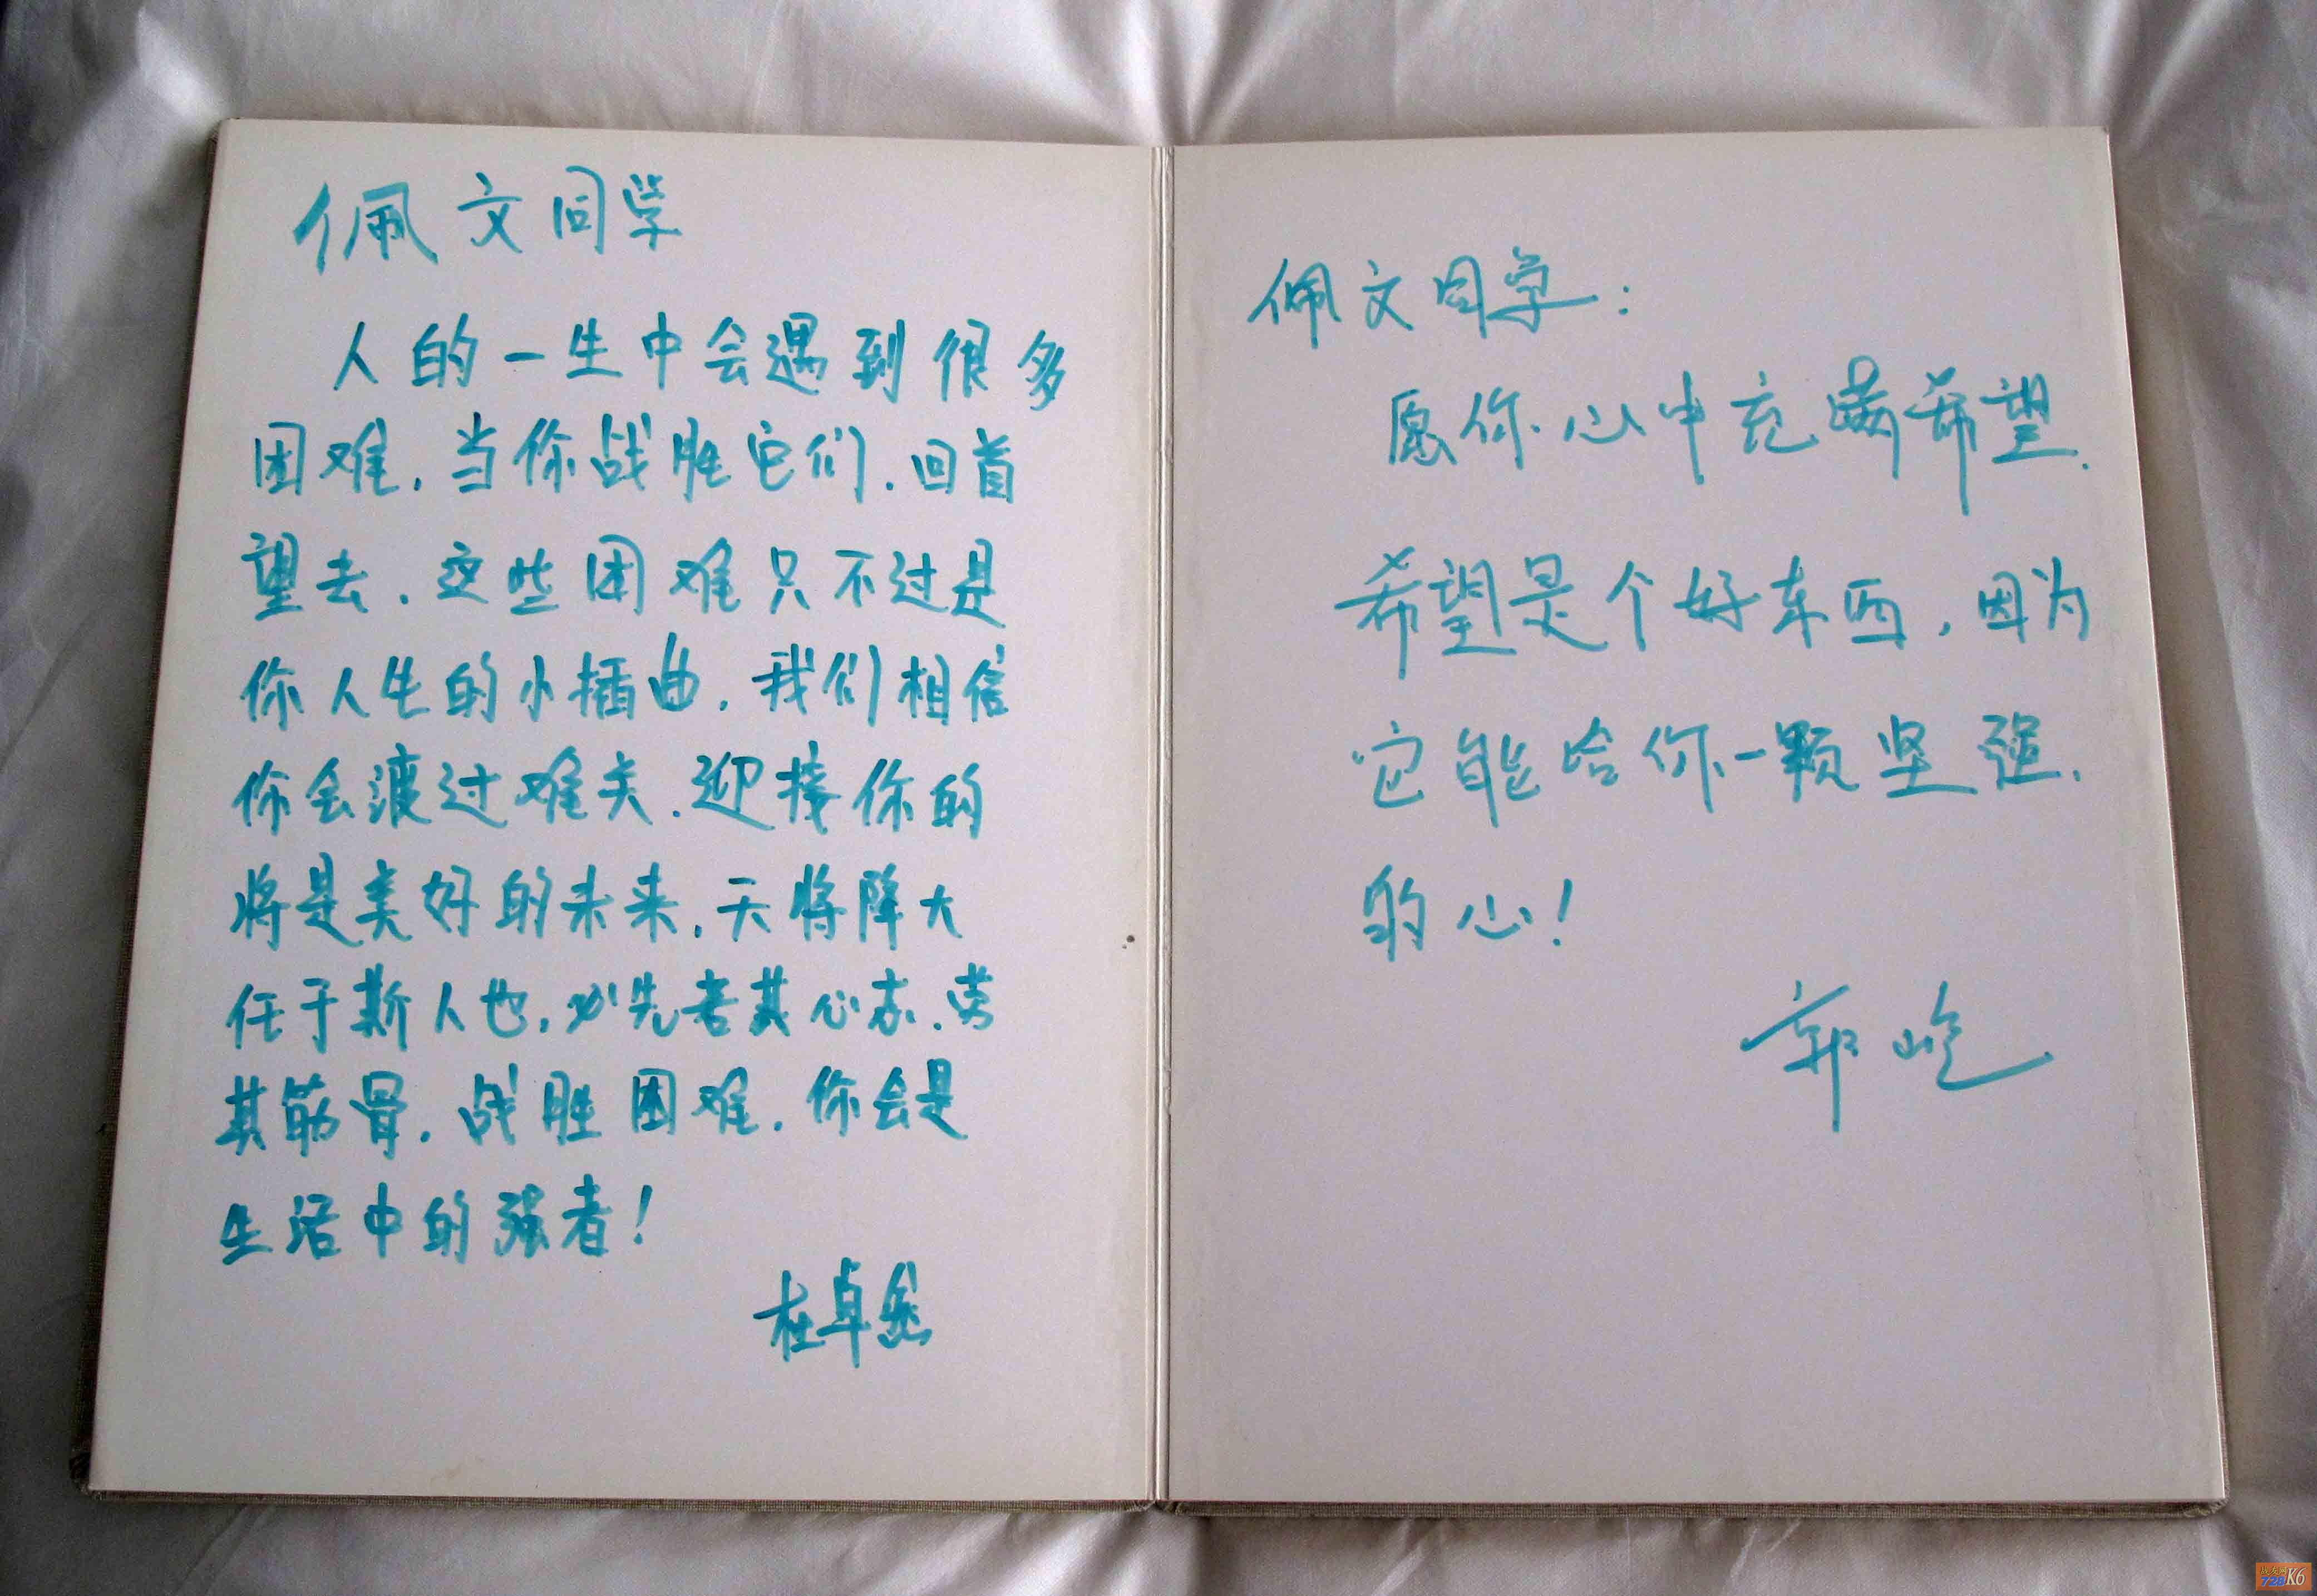 佩文同学
人的一生中会遇到很多
困难.当你战胜它们.回首
望去.这些困难只不过是
你人生的小插曲.我们相信
你会渡过难关.迎接你的
将是美好的未来.天将降大
任于斯人也.必先苦其心志.劳
其筋骨.战胜困难.你会是
生活中的强者!
杜卓
佩文同学:
愿你心中充满希望.
希望是个好东西,因为
它能给你一颗坚强.
的心!
郭屹
K6